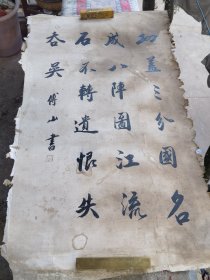 功蓋三分國名
成八陣圖江流
石不轉遺恨失
吞吳
傅山書